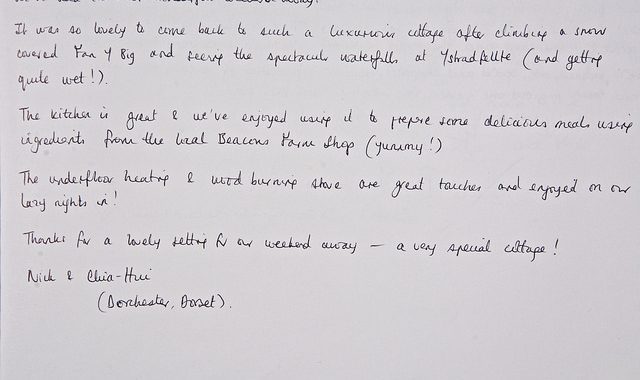 It was so lovely to come back to such a luxurious cottage after climbing a snow
covered Fan Y Big and seeing the spectacular waterfalls at Ystradfellte (and getting
quite wet!).
The kitchen is great & we've enjoyed using it to prepare some delicious meals using
ingredients from the local Beacons Farm Shop (yummy!)
The underfloor heating & wood burning stove are great touches and enjoyed on our
lazy nights in!
Thanks for a lovely setting for our weekend away – a very special cottage!
Nick & Chia-Hui
(Dorchester, Dorset).